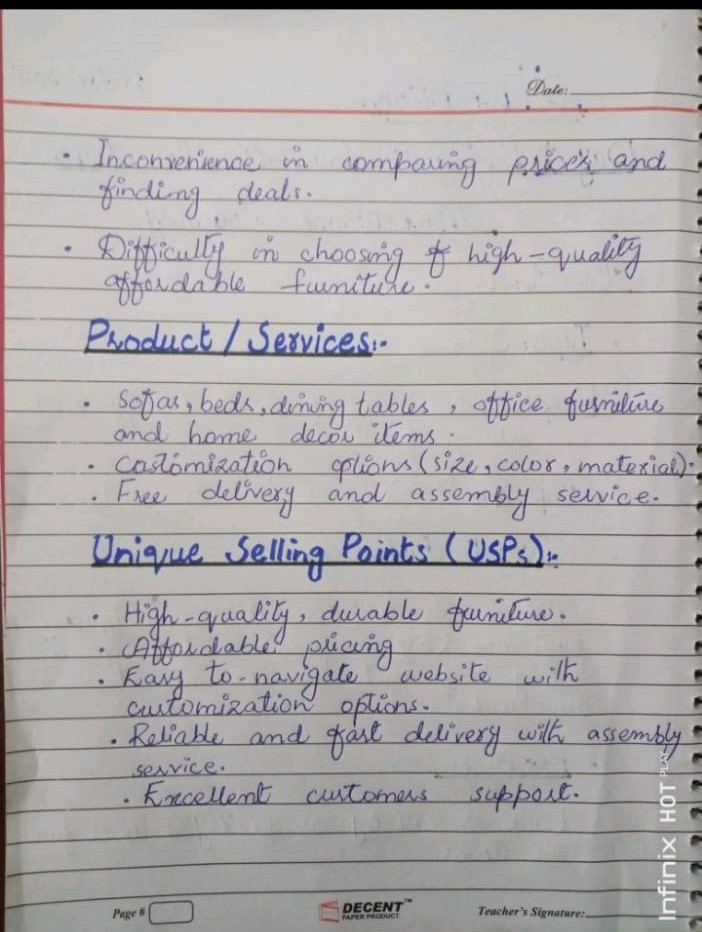 Date:
• Inconvenience in comparing prices and
finding deals.
• Difficully in choosing of high-quality
affordable furniture.
Product / Services:-
• Sofas, beds, dining tables, office furniture
and home decor items.
• Castomization options (size, color, material).
• Free delivery and assembly service.
Unique Selling Points (USPs):-
• High-quality, durable furniture.
• Affordable pricing
• Easy to-navigate website with
customization options.
• Reliable and fast delivery with assembly
service.
• Excellent customers support.
Page #
DECENT™
PAPER PRODUCT
Teacher's Signature:
Infinix HOT PLAY